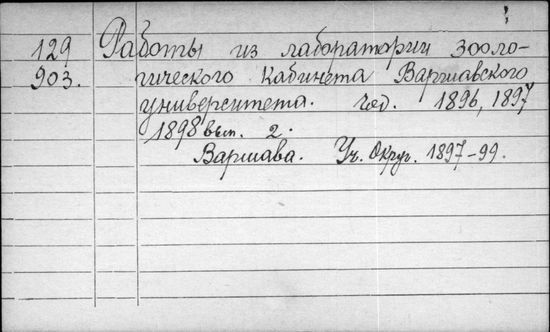 129 Работы из лаборатории зооло-
903. гического Кабинета Варшавского
университета. Год. 1896, 1897
1898 вып. 2.
Варшава. Уч. Округ. 1897-99.